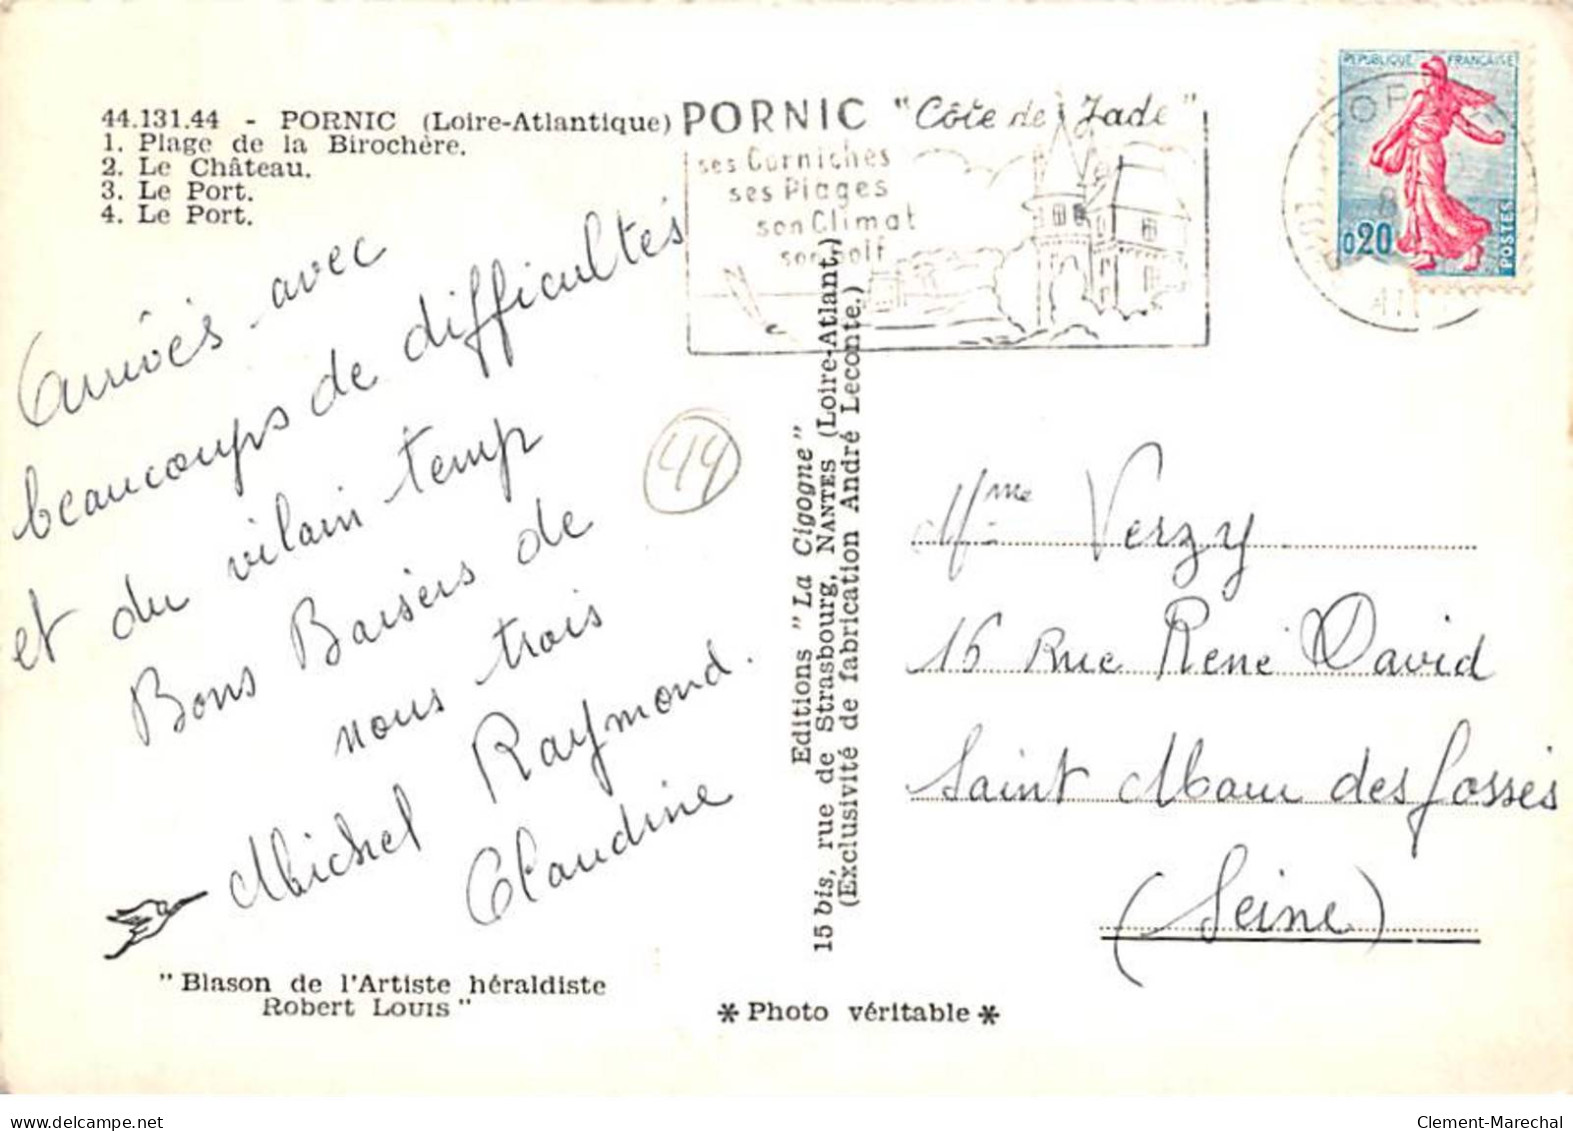 44.131.44 - PORNIC (Loire-Atlantique)
1. Plage de la Birochère.
2. Le Château.
3. Le Port.
4. Le Port.
PORNIC "Côte de Jade"
ses Corniches
ses Plages
son Climat
son Golf
REPUBLIQUE FRANÇAISE
0,20
POSTES
Arrivés avec
beaucoups de difficultés
et du vilain temp
Bons Baisers de
nous trois
Michel Raymond.
Claudine
44
"Blason de l'Artiste héraldiste
Robert LOUIS"
Editions "La Cigogne"
15 bis, rue de Strasbourg, NANTES (Loire-Atlant.)
(Exclusivité de fabrication André Leconte.)
* Photo véritable *
Mme Verzy
16 Rue René David
Saint Maur des fossés
(Seine)
www.delcampe.net
Clement-Marechal